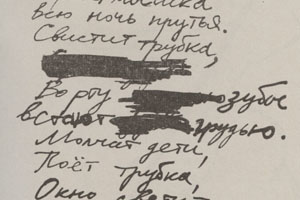 всю ночь прутья.
Свистит трубка,
Во рту
встают грудью.
Молчат дети,
Поёт трубка,
Окно